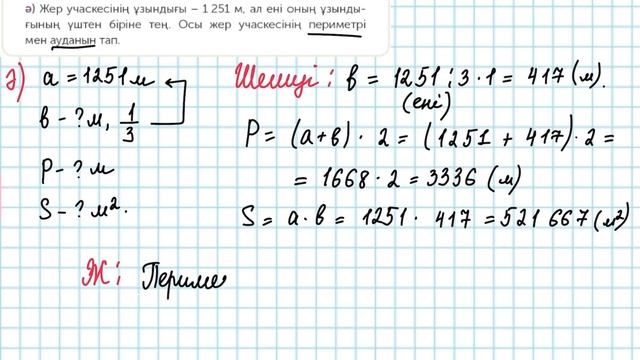 ә) Жер учаскесінің ұзындығы – 1 251 м, ал ені оның ұзынды-
ғының үштен біріне тең. Осы жер учаскесінің периметрі
мен ауданын тап.
ә) a = 1251 м
в - ? м, 1/3
P - ? м
S - ? м².
Шешуі: в = 1251 : 3 · 1 = 417 (м).
(ені)
P = (a+в) · 2 = (1251 + 417) · 2 =
= 1668 · 2 = 3336 (м)
S = a · в = 1251 · 417 = 521 667 (м²)
Ж: Периме